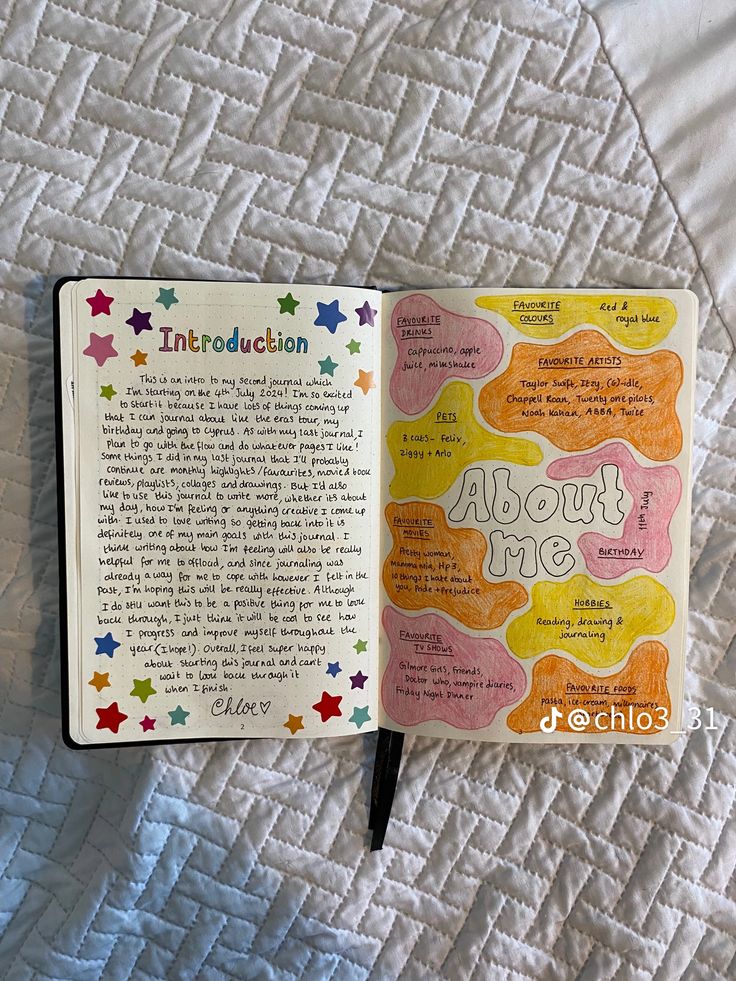 Introduction
This is an intro to my second journal which
I'm starting on the 4th July 2024! I'm so excited
to start it because I have lots of things coming up
that I can journal about like the eras tour, my
birthday and going to Cyprus. As with my last journal, I
plan to go with the flow and do whatever pages I like!
Some things I did in my last journal that I'll probably
continue are monthly highlights/favourites, movie & book
reviews, playlists, collages and drawings. But I'd also
like to use this journal to write more, whether it's about
my day, how I'm feeling or anything creative I come up
with. I used to love writing so getting back into it is
definitely one of my main goals with this journal. I
think writing about how I'm feeling will also be really
helpful for me to offload, and since journaling was
already a way for me to cope with however I felt in the
past, I'm hoping this will be really effective. Although
I do still want this to be a positive thing for me to look
back through, I just think it will be cool to see how
I progress and improve myself throughout the
year (I hope!). Overall, I feel super happy
about starting this journal and can't
wait to look back through it
when I finish.
Chloe♡
2
FAVOURITE
DRINKS
cappuccino, apple
juice, milkshake
FAVOURITE
COLOURS
Red &
royal blue
FAVOURITE ARTISTS
Taylor Swift, Itzy, (G)-idle,
Chappell Roan, Twenty one pilots,
Noah Kahan, ABBA, Twice
PETS
3 cats- Felix,
Ziggy + Arlo
About
me
11th July
BIRTHDAY
FAVOURITE
MOVIES
Pretty woman,
mamma mia, Hp3,
10 things I hate about
you, Pride + Prejudice
HOBBIES
Reading, drawing &
journaling
FAVOURITE
TV SHOWS
Gilmore Girls, Friends,
Doctor Who, vampire diaries,
Friday Night Dinner
FAVOURITE FOODS
pasta, ice-cream,
3
@chlo3_31